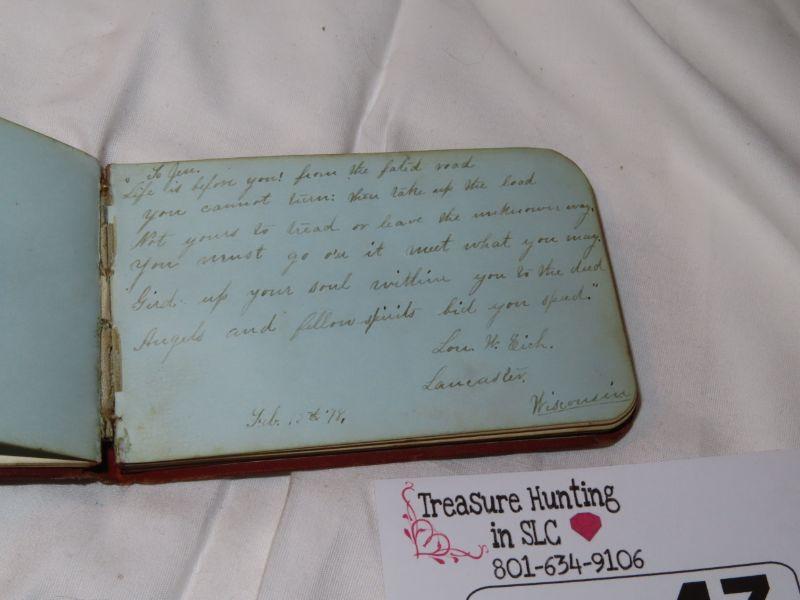 To Jen.
"Life is before you! from the fated road
you cannot turn: then take up the load
Not yours to tread or leave the unknown way.
You must go o'er it meet what you may.
Gird up your soul within you to the deed
Angels and fellow spirits bid you speed."
Lou. W. Eich.
Lancaster.
Wisconsin
Feb. th '78.
Treasure Hunting
in SLC
801-634-9106
47